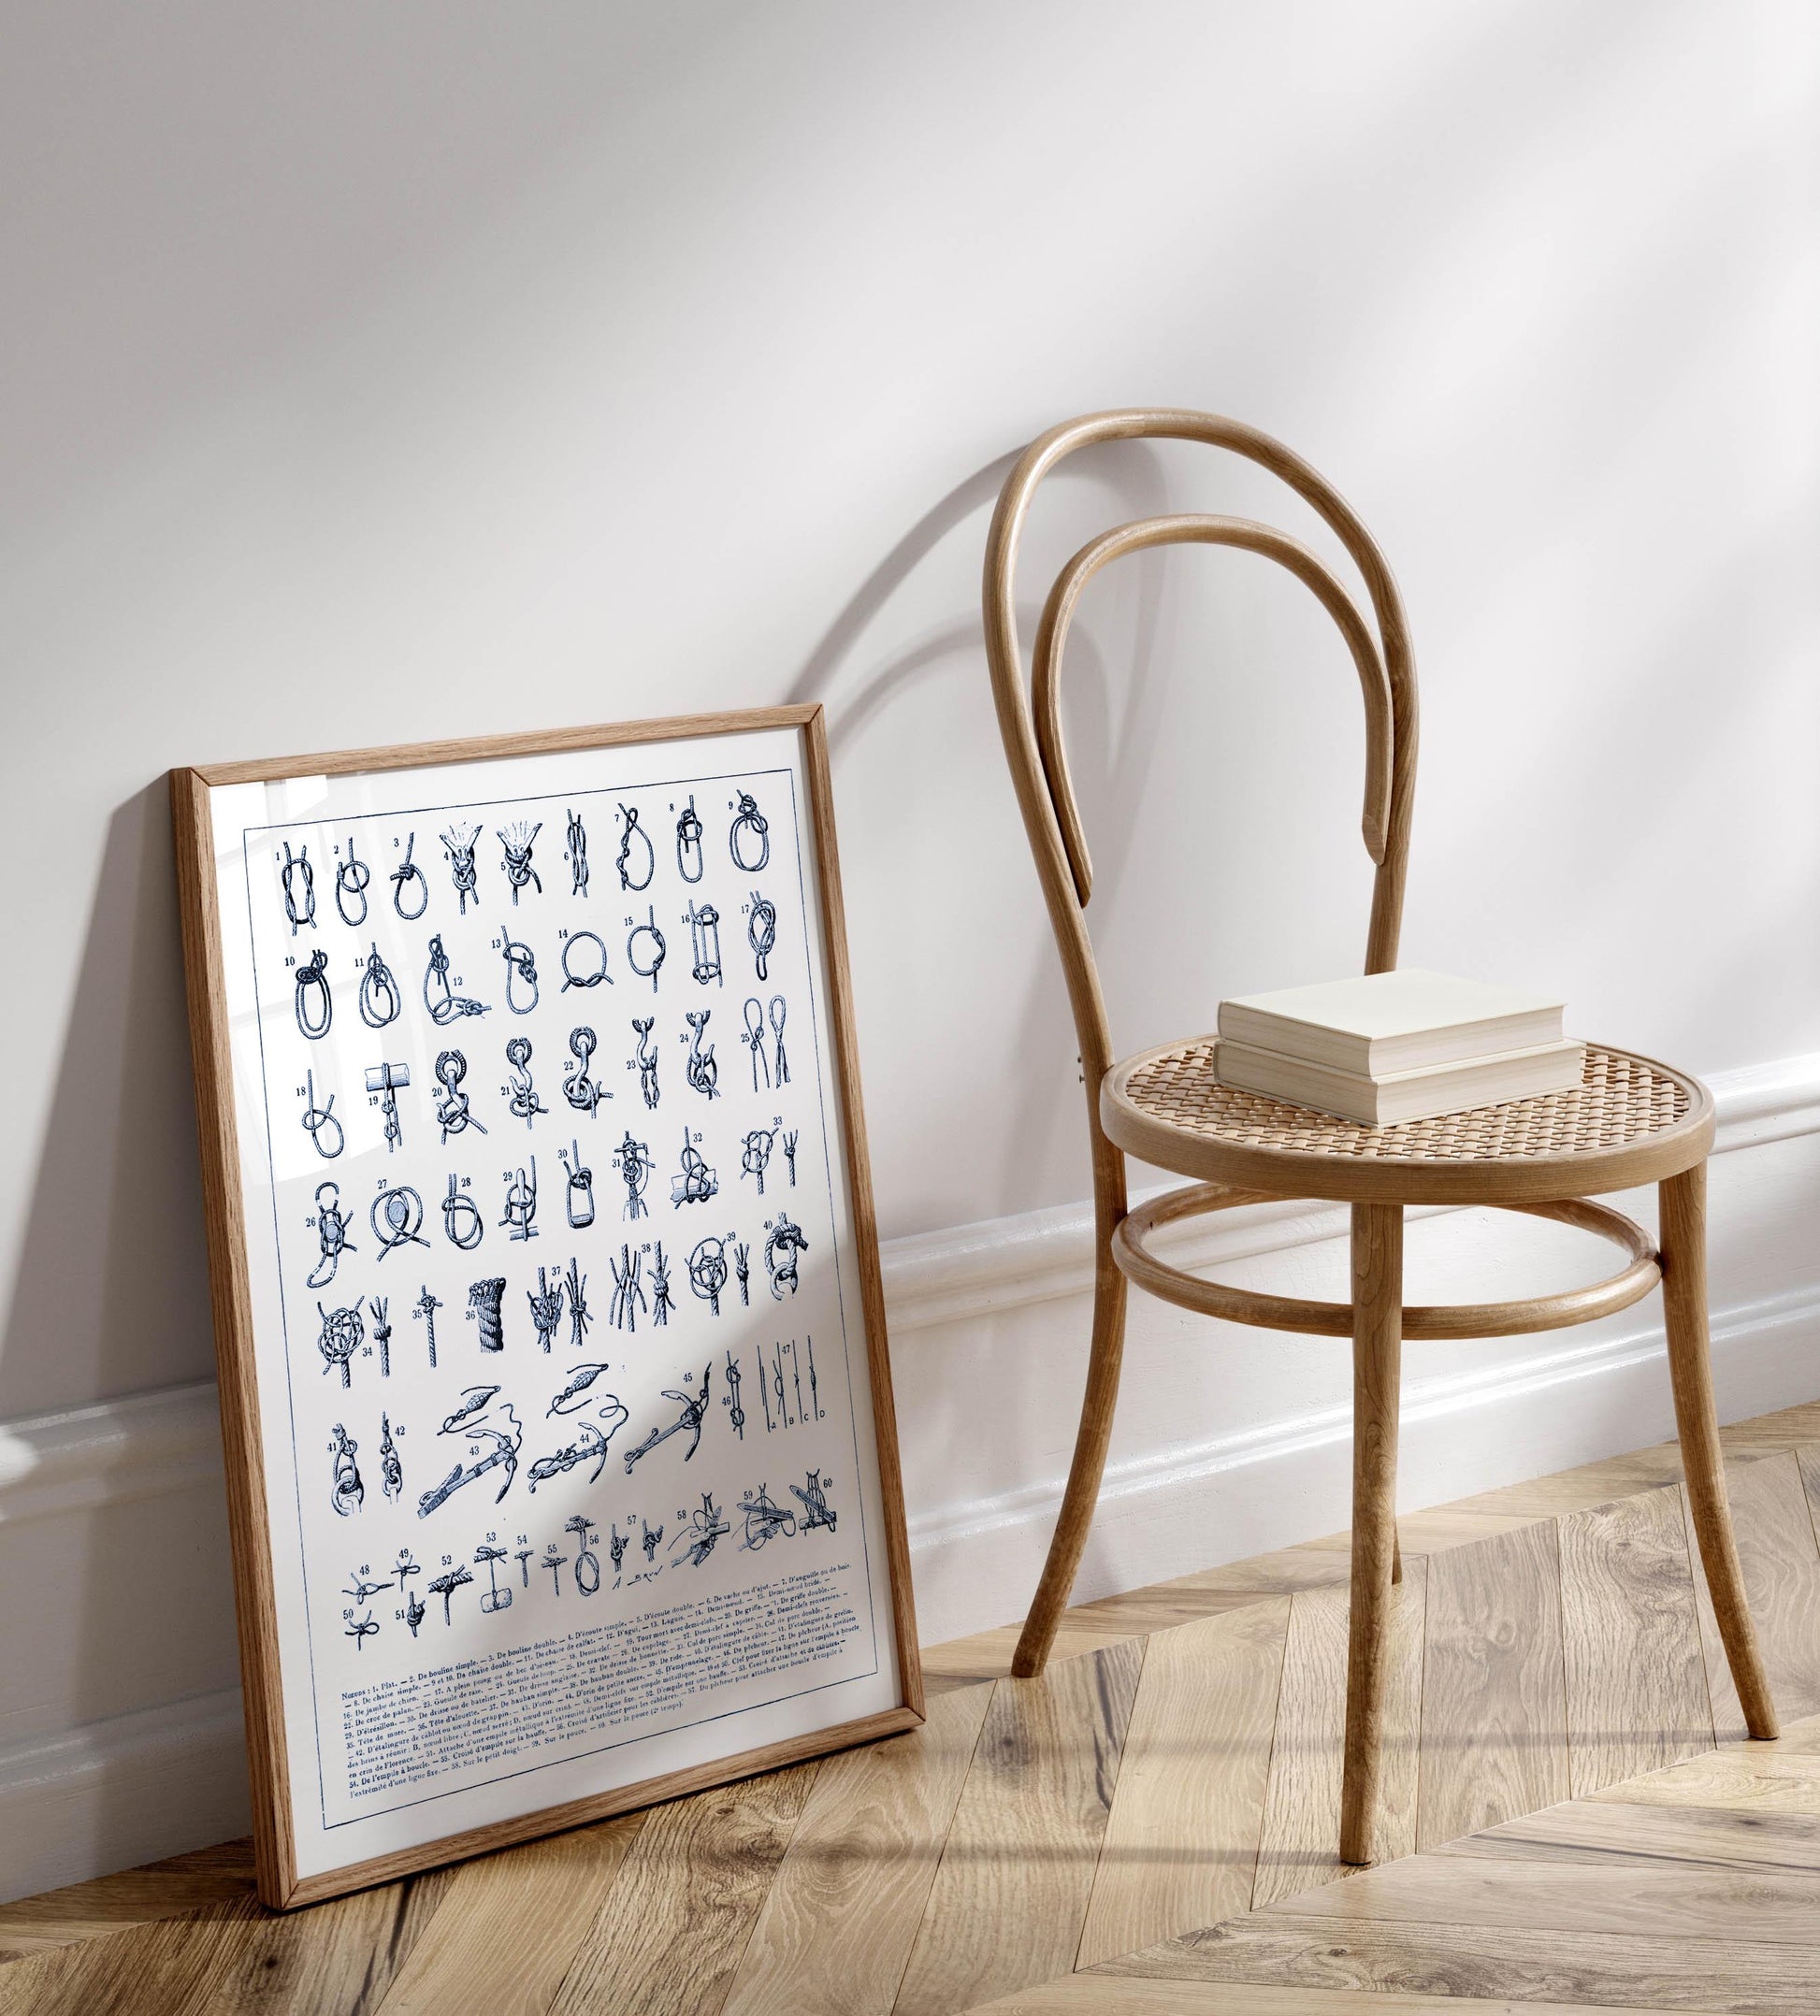 1 2 3 4 5 6 7 8 9
10 11 12 13 14 15 16 17
18 19 20 21 22 23 24 25
26 27 28 29 30 31 32 33
34 35 36 37 38 39 40
41 42 43 44 45 46 47
A B C D
48 49 52 53 54 55 56 57 58 59 60
50 51
Nœuds : 1. Plat. — 2. De bouline simple. — 3. De bouline double. — 4. D'écoute simple. — 5. D'écoute double. — 6. De vache ou d'ajut. — 7. D'anguille ou de bois.
— 8. De chaise simple. — 9 et 10. De chaise double. — 11. De chaise de calfat. — 12. D'agui. — 13. Laguis. — 14. Demi-nœud. — 15. Demi-nœud bridé. —
16. De jambe de chien. — 17. A plein poing ou de bec d'oiseau. — 18. Demi-clef. — 19. Tour mort avec demi-clefs. — 20. De griffe. — 21. De griffe double. —
22. De croc de palan. — 23. Gueule de raie. — 24. Gueule de loup. — 25. De cravate — 26. De capelage. — 27. Demi-clef à capeler. — 28. Demi-clefs renversées. —
29. D'étrésillon. — 30. De drisse ou de batelier. — 31. De drisse anglaise. — 32. De drisse de bonnette. — 33. Cul de porc simple. — 34. Cul de porc double. —
35. Tête de more. — 36. Tête d'alouette. — 37. De hauban simple. — 38. De hauban double. — 39. De ride. — 40. D'étalingure de câble. — 41. D'étalingure de grelin.
— 42. D'étalingure de câblot ou nœud de grappin. — 43. D'orin. — 44. D'orin de petite ancre. — 45. D'empennelage. — 46. De plêcheur. — 47. De pêcheur (A, position
des brins à réunir ; B, nœud libre ; C, nœud serré ; D, nœud sur crin). — 48. Demi-clefs sur empile métallique. — 49 et 50. Clef pour fixer la ligne sur l'empile à boucle
en crin de Florence. — 51. Attache d'une empile métallique à l'extrémité d'une ligne fixe. — 52. D'empile sur une bauffe. — 53. Croisé d'attache et de câblière. —
54. De l'empile à boucle. — 55. Croisé d'empile sur la bauffe. — 56. Croisé d'artificier pour les câblières. — 57. Du pêcheur pour attacher une boucle d'empile à
l'extrémité d'une ligne fixe. — 58. Sur le petit doigt. — 59. Sur le pouce. — 60. Sur le pouce (2e temps).